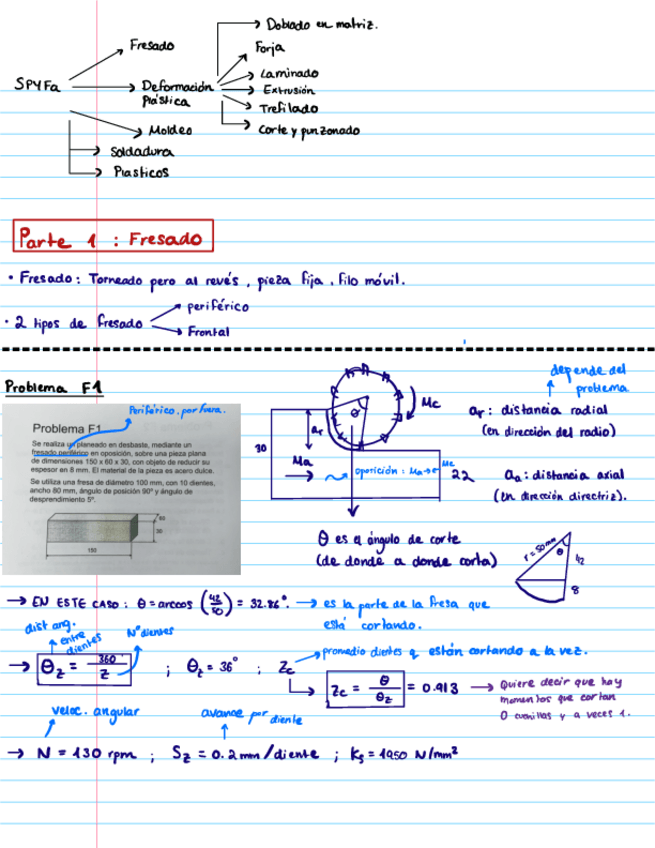 SPYFa
Fresado
Deformación
plástica
Moldeo
Soldadura
Plasticos
Doblado en matriz.
Forja
Laminado
Extrusión
Trefilado
Corte y punzonado
Parte 1 : Fresado
• Fresado : Torneado pero al revés , pieza fija , filo móvil.
• 2 tipos de fresado
periférico
Frontal
Problema F1
Periférico, por fuera.
Problema F1
Se realiza un planeado en desbaste, mediante un
fresado periférico en oposición, sobre una pieza plana
de dimensiones 150 x 60 x 30, con objeto de reducir su
espesor en 8 mm. El material de la pieza es acero dulce.
Se utiliza una fresa de diámetro 100 mm, con 10 dientes,
ancho 80 mm, ángulo de posición 90º y ángulo de
desprendimiento 5º.
60
30
150
Mc
θ
ar
30
Ma
oposición : Ma→← Mc
22
depende del
problema
ar : distancia radial
(en dirección del radio)
aa : distancia axial
(en dirección directriz).
θ es el ángulo de corte
(de donde a donde corta)
r = 50mm
θ
42
8
→ EN ESTE CASO : θ = arccos (42/50) = 32.86°. → es la parte de la fresa que
está cortando.
dist ang.
entre
dientes
Nº dientes
→ θz = 360°/Z ; θz = 36° ; Zc → promedio dientes q están cortando a la vez.
Zc = θ/θz = 0.913 → Quiere decir que hay
momentos que cortan
0 cuchillas y a veces 1.
veloc. angular
avance por diente
→ N = 130 rpm ; Sz = 0.2 mm/diente ; Ks = 1950 N/mm²